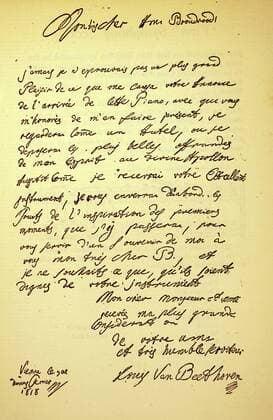 Mon tres cher Ami Broadwood!
jamais je n'eprouvais pas un plus grand
Plaisir de ce que me causa votre Annonce
de l'arrivée de cette Piano, avec que vous
m'honorès de m'en faire présent, je
regarderai come un Autel, ou je
deposerai les plus belles offrandes
de mon Esprit au divine Apollon.
Aussitôt come je recevrai votre Excellent
Instrument, je vous enverrai d'abord les
Fruits de l'inspiration des premiers
moments, que j'y passerai, pour
vous servir d'un Souvenir de moi à
vous mon très cher B., et
je ne souhaits ce que, qu'ils soient
dignes de votre Instrument.
Mon cher Monsieur et ami
recevés ma plus grande
Consideration
de votre ami
et très humble serviteur
Louis Van Beethoven
Vienne le 3me
du mois Fevrier
1818